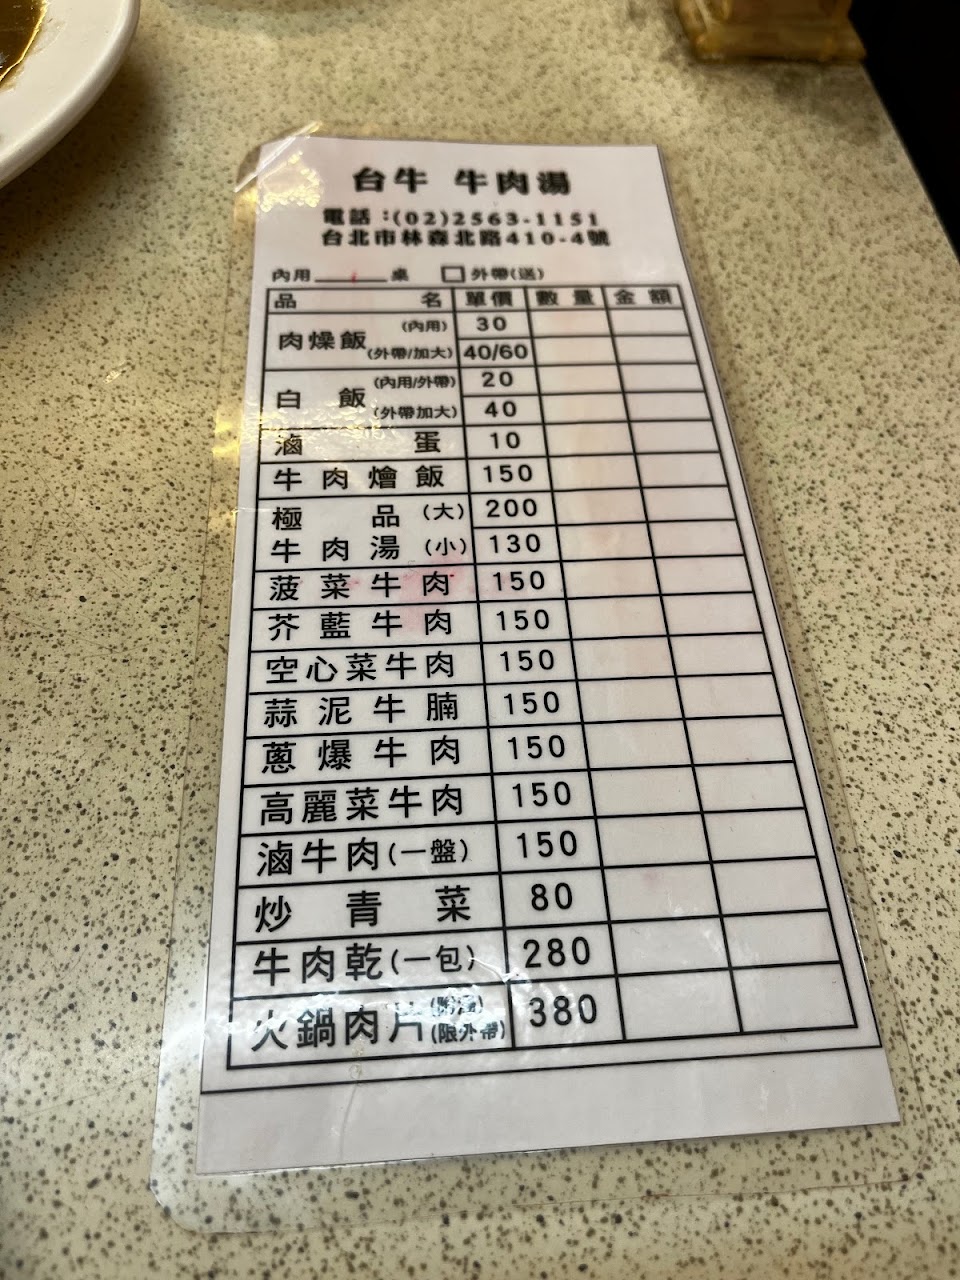 台牛 牛肉湯
電話:(02)2563-1151
台北市林森北路410-4號
內用 桌 □外帶(送)
品名 單價 數量 金額
肉燥飯 (內用) 30
(外帶/加大) 40/60
白飯 (內用/外帶) 20
(外帶加大) 40
滷蛋 10
牛肉燴飯 150
極品 (大) 200
牛肉湯 (小) 130
菠菜牛肉 150
芥藍牛肉 150
空心菜牛肉 150
蒜泥牛腩 150
蔥爆牛肉 150
高麗菜牛肉 150
滷牛肉(一盤) 150
炒青菜 80
牛肉乾(一包) 280
火鍋肉片 (附湯) 380
(限外帶)